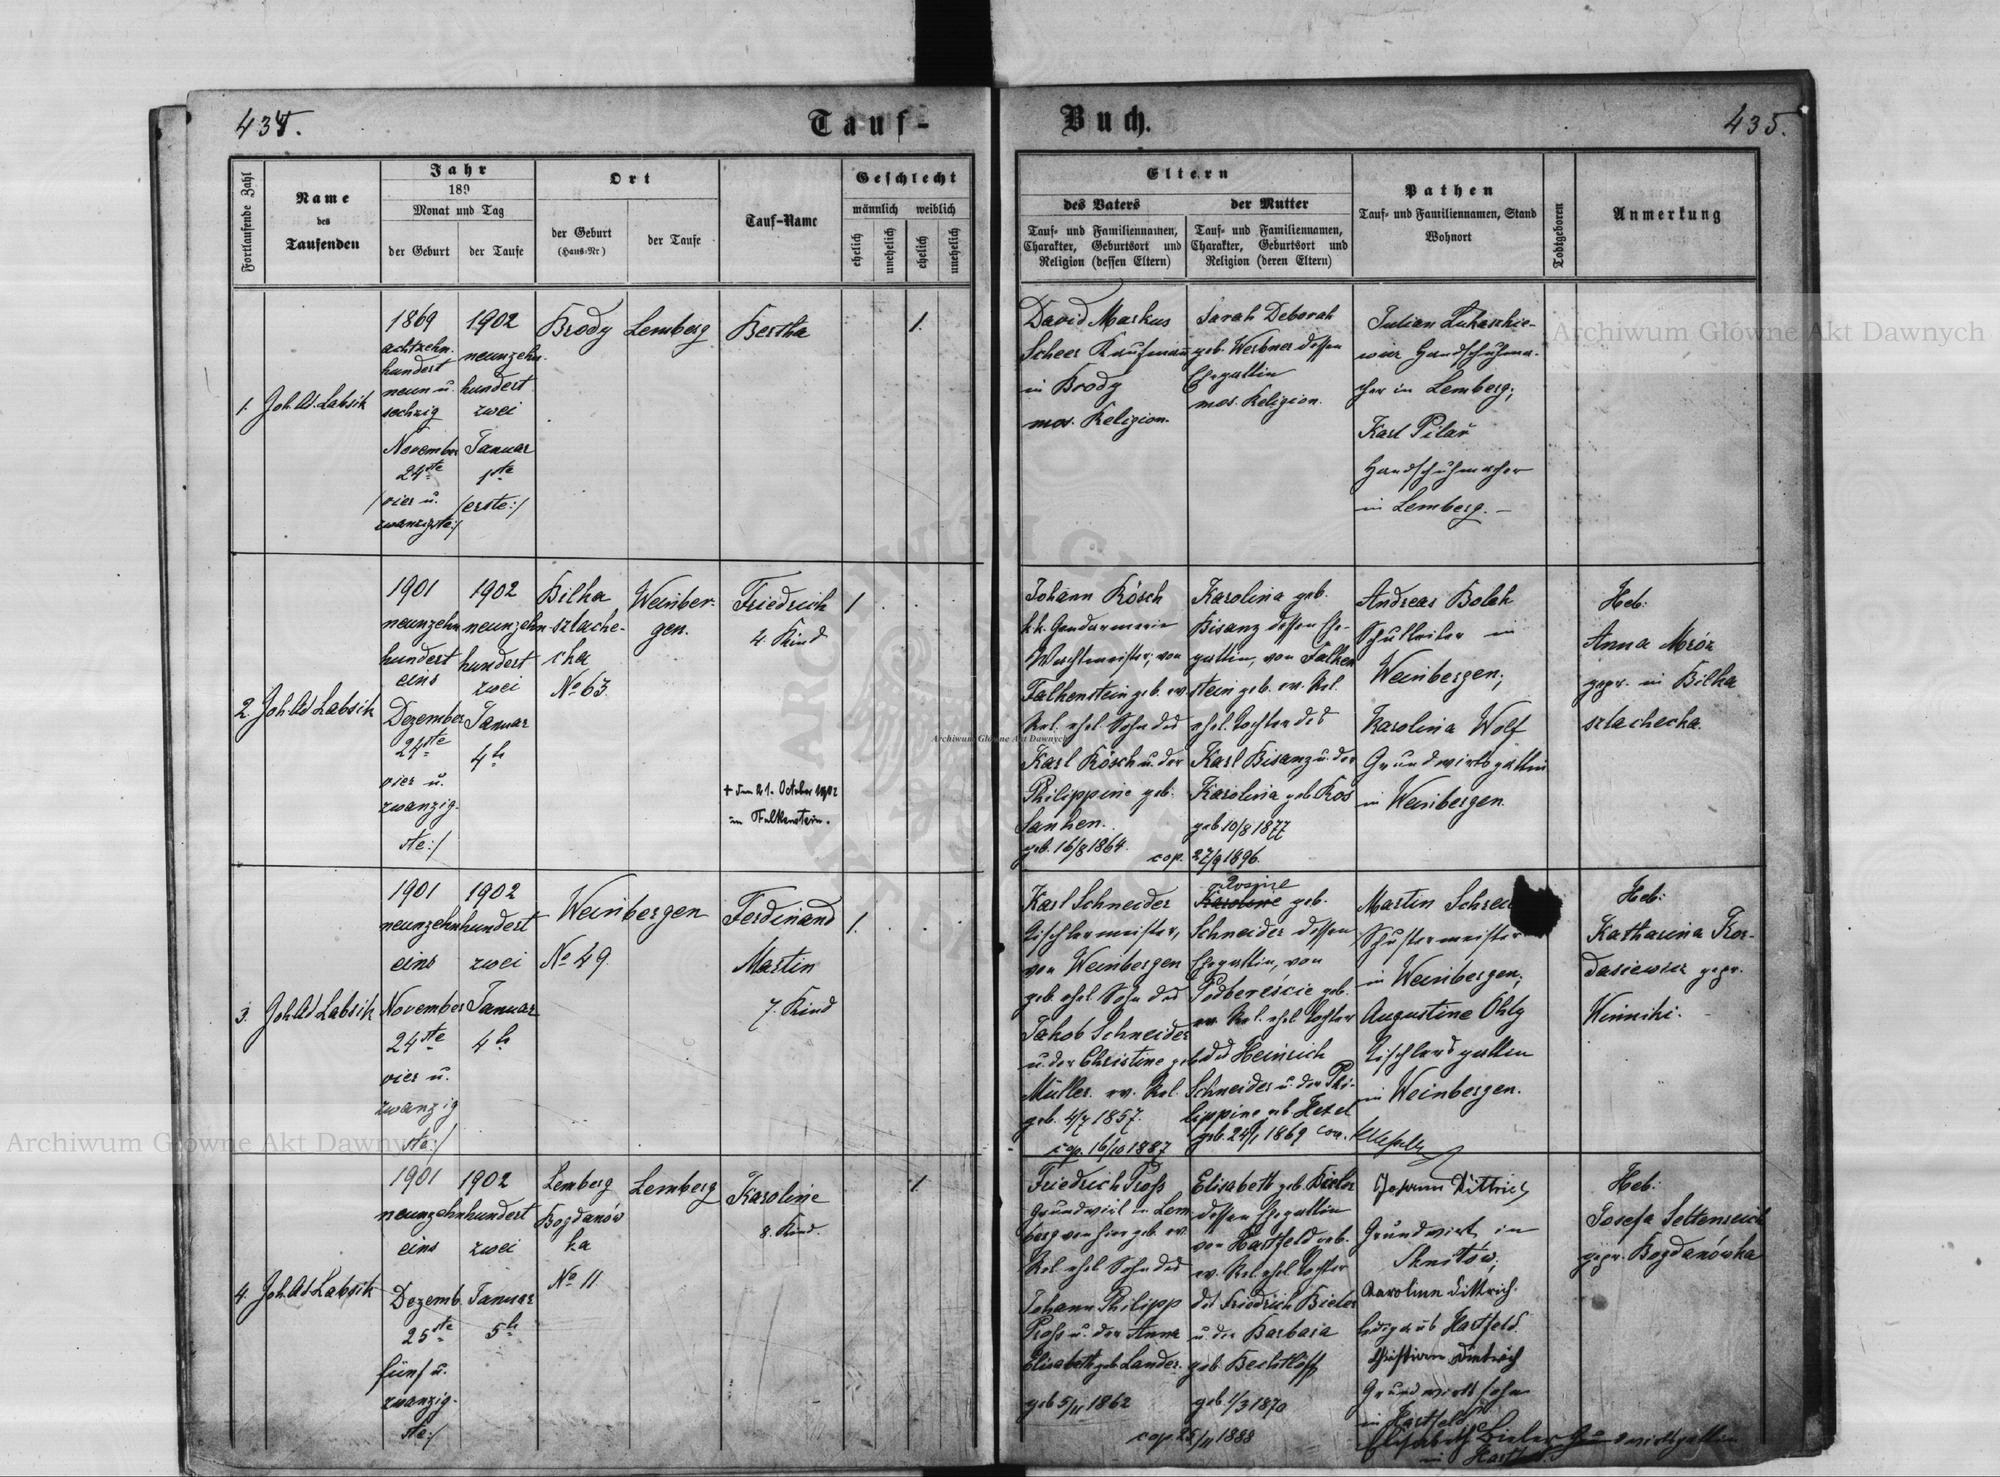 434.
Tauf-
Buch.
435.
Fortlaufende Zahl
Name
des
Taufenden
Jahr
189
Monat und Tag
der Geburt
der Taufe
Ort
der Geburt
(Haus-Nr)
der Taufe
Tauf-Name
Geschlecht
männlich
weiblich
ehelich
unehelich
ehelich
unehelich
Eltern
des Vaters
Tauf- und Familiennamen,
Charakter, Geburtsort und
Religion (dessen Eltern)
der Mutter
Tauf- und Familiennamen,
Charakter, Geburtsort und
Religion (deren Eltern)
Pathen
Tauf- und Familiennamen, Stand
Wohnort
Todtgeboren
Anmerkung
1.
Joh. Ad. Labsik
1869
achtzehn-
hundert
neun u.
sechzig
November
24ste
/vier u.
zwanzigste:/
1902
neunzehn-
hundert
zwei
Januar
1ste
/erste:/
Brody
Lemberg
Bertha
1.
David Markus
Scheer Kaufmann
in Brody
mos. Religion.
Sarah Deborah
geb. Werbner dessen
Ehegattin
mos. Religion.
Julian Lukaschie-
wicz Handschuhma-
cher in Lemberg;
Karl Pilař
Handschuhmacher
in Lemberg. –
2.
Joh. Ad. Labsik
1901
neunzehn
hundert
eins
Dezember
24ste
vier u.
zwanzig-
ste:/
1902
neunzehn
hundert
zwei
Januar
4te
Bilka
szlache-
cka
No 63.
Weinber-
gen.
Friedrich
4. Kind
+ den 21. October 1902
in Falkenstein.
1
Johann Kösch
k.k. Gendarmerie
Wachtmeister, von
Falkenstein geb. ev.
Rel. ehel. Sohn des
Karl Kösch u. der
Philippine geb.
Sanken.
geb. 16/8 1864.
cop. 27/9 1896.
Karolina geb.
Bisanz dessen Ehe-
gattin, von Falken
stein geb. ev. Rel.
ehel. Tochter des
Karl Bisanz u. der
Karolina geb. Kos
geb 10/8 1877
Andreas Bolek
Schulleiter in
Weinbergen;
Karolina Wolf
Grundwirtsgattin
in Weinbergen.
Heb:
Anna Mróz
gepr. in Bilka
szlachecka.
3.
Joh. Ad. Labsik
1901
neunzehn
eins
November
24ste
vier u.
zwanzig
ste:/
1902
hundert
zwei
Januar
4te
Weinbergen
No 49.
Ferdinand
Martin
7. Kind
1.
Karl Schneider
Tischlermeister,
von Weinbergen
geb. ehel. Sohn des
Jakob Schneider
u. der Christine geb.
Müller. ev. Rel.
geb. 4/7 1857.
cop. 16/10 1887
Rosine
Karoline geb.
Schneider dessen
Ehegattin, von
Podbereście geb.
ev. Rel. ehel. Tochter
des Heinrich
Schneider u. der Phi-
lippine geb. Hetzel
geb. 24/1 1869
Martin
Schustermeister
in Weinbergen;
Augustine Ohly
Tischlersgattin
in Weinbergen.
Heb:
Katharina Kor-
dasiewicz gepr.
Winniki.
4.
Joh. Ad. Labsik
1901
neunzehn
eins
Dezemb.
25ste
fünf u.
zwanzig-
ste:/
1902
hundert
zwei
Januar
5te
Lemberg
Bogdanów
ka
No 11
Lemberg
Karoline
8. Kind.
1.
Friedrich Pross
Grundwirt in Lem
berg von hier geb. ev.
Rel. ehel. Sohn des
Johann Philipp
Pross u. der Anna
Elisabeth geb. Lander.
geb 5/11 1862
cop 25/11 1888
Elisabeth geb. Bieler
dessen Ehegattin
von Hartfeld geb.
ev. Rel. ehel. Tochter
des Friedrich Bieler
u. der Barbara
geb. Bechtloff
geb. 1/3 1870
Johann Dittrich
Grundwirt in
Karoline Dittrich
ledig aus Hartfeld
Christian Dietrich
Grundwirtssohn
in Hartfeld
Elisabeth Bieler Grundwirtsgattin
in Hartfeld.
Heb:
Josefa Settenreich
gepr. Bogdanówka
Archiwum Główne Akt Dawnych
Archiwum Główne Akt Dawnych
Archiwum Główne Akt Dawnych